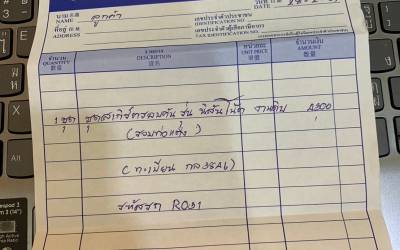 นาม 名稱
NAME ลูกค้า
ที่อยู่ 住址
ADDRESS
วันที่ 日期
DATE
เลขประจำตัวประชาชน
IDENTIFICATION NO.
เลขประจำตัวผู้เสียภาษีอากร
TAX IDENTIFICATION NO.
จำนวน
QUANTITY
數量
รายการ
DESCRIPTION
貨名
หน่วยละ
UNIT PRICE
單價
จำนวนเงิน
AMOUNT
銀額
1 ชุด ชุดสเกิร์ตรอบคัน รุ่น นิสสัน โน๊ต งานดิบ 4500
(รอบ
(ทะเบียน กล
รหัสชุด R031
High Active